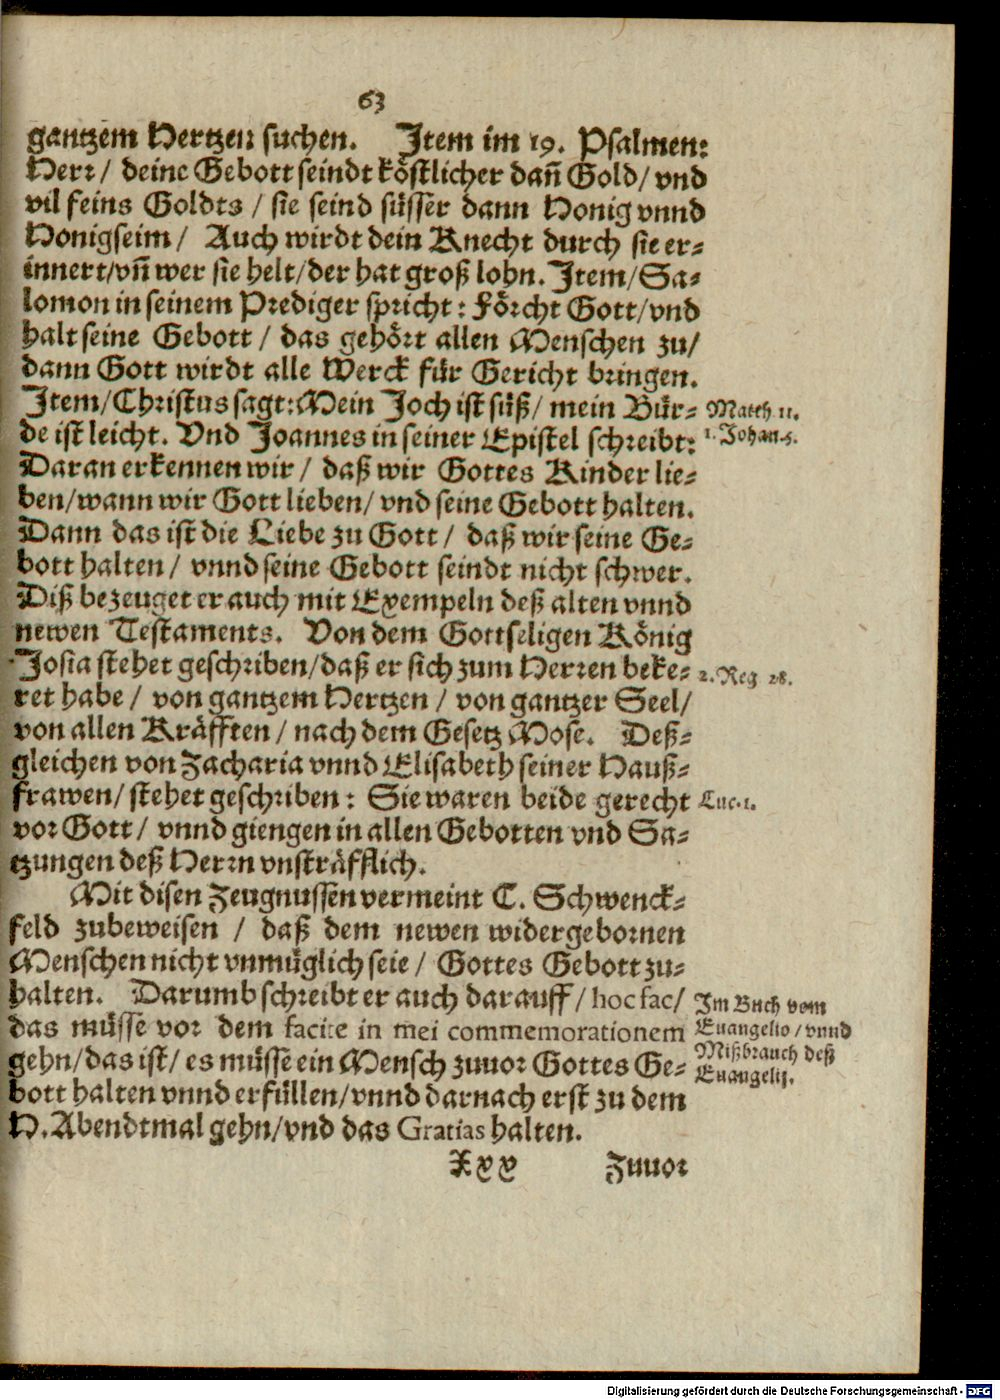 63
gantzem Hertzen suchen. Item im 19. Psalmen:
Herr/ deine Gebott seindt köstlicher dañ Gold/ vnd
vil feins Goldts / sie seind süsser dann Honig vnnd
Honigseim/ Auch wirdt dein Knecht durch sie er-
innert/vñ wer sie helt/der hat groß lohn. Item/Sa-
lomon in seinem Prediger spricht: Förcht Gott/vnd
halt seine Gebott / das gehört allen Menschen zu/
dann Gott wirdt alle Werck für Gericht bringen.
Item/Christus sagt:Mein Joch ist süß/ mein Bür-
Matth. 11.
de ist leicht. Vnd Joannes in seiner Epistel schreibt:
1. Johan. 5.
Daran erkennen wir / daß wir Gottes Kinder lie-
ben/wann wir Gott lieben/ vnd seine Gebott halten.
Dann das ist die Liebe zu Gott / daß wir seine Ge-
bott halten / vnnd seine Gebott seindt nicht schwer.
Diß bezeuget er auch mit Exempeln deß alten vnnd
newen Testaments. Von dem Gottseligen König
Josia stehet geschriben/daß er sich zum Herren beke-
2. Reg 28.
ret habe / von gantzem Hertzen / von gantzer Seel/
von allen Kräfften / nach dem Gesetz Mose. Deß-
gleichen von Zacharia vnnd Elisabeth seiner Hauß-
frawen/ stehet geschriben: Sie waren beide gerecht
Luc. 1.
vor Gott/ vnnd giengen in allen Gebotten vnd Sa-
tzungen deß Herrn vnsträfflich.
Mit disen Zeugnussen vermeint C. Schwenck-
feld zubeweisen / daß dem newen widergebornen
Menschen nicht vnmüglich seie / Gottes Gebott zu-
halten. Darumb schreibt er auch darauff / hoc fac/
Im Buch vom
das müsse vor dem facite in mei commemorationem
Euangelio / vnnd
gehn/das ist/ es müsse ein Mensch zuuor Gottes Ge-
Mißbrauch deß
Euangelij.
bott halten vnnd erfüllen/vnnd darnach erst zu dem
H. Abendtmal gehn/vnd das Gratias halten.
Xxx Zuuor
Digitalisierung gefördert durch die Deutsche Forschungsgemeinschaft - DFG